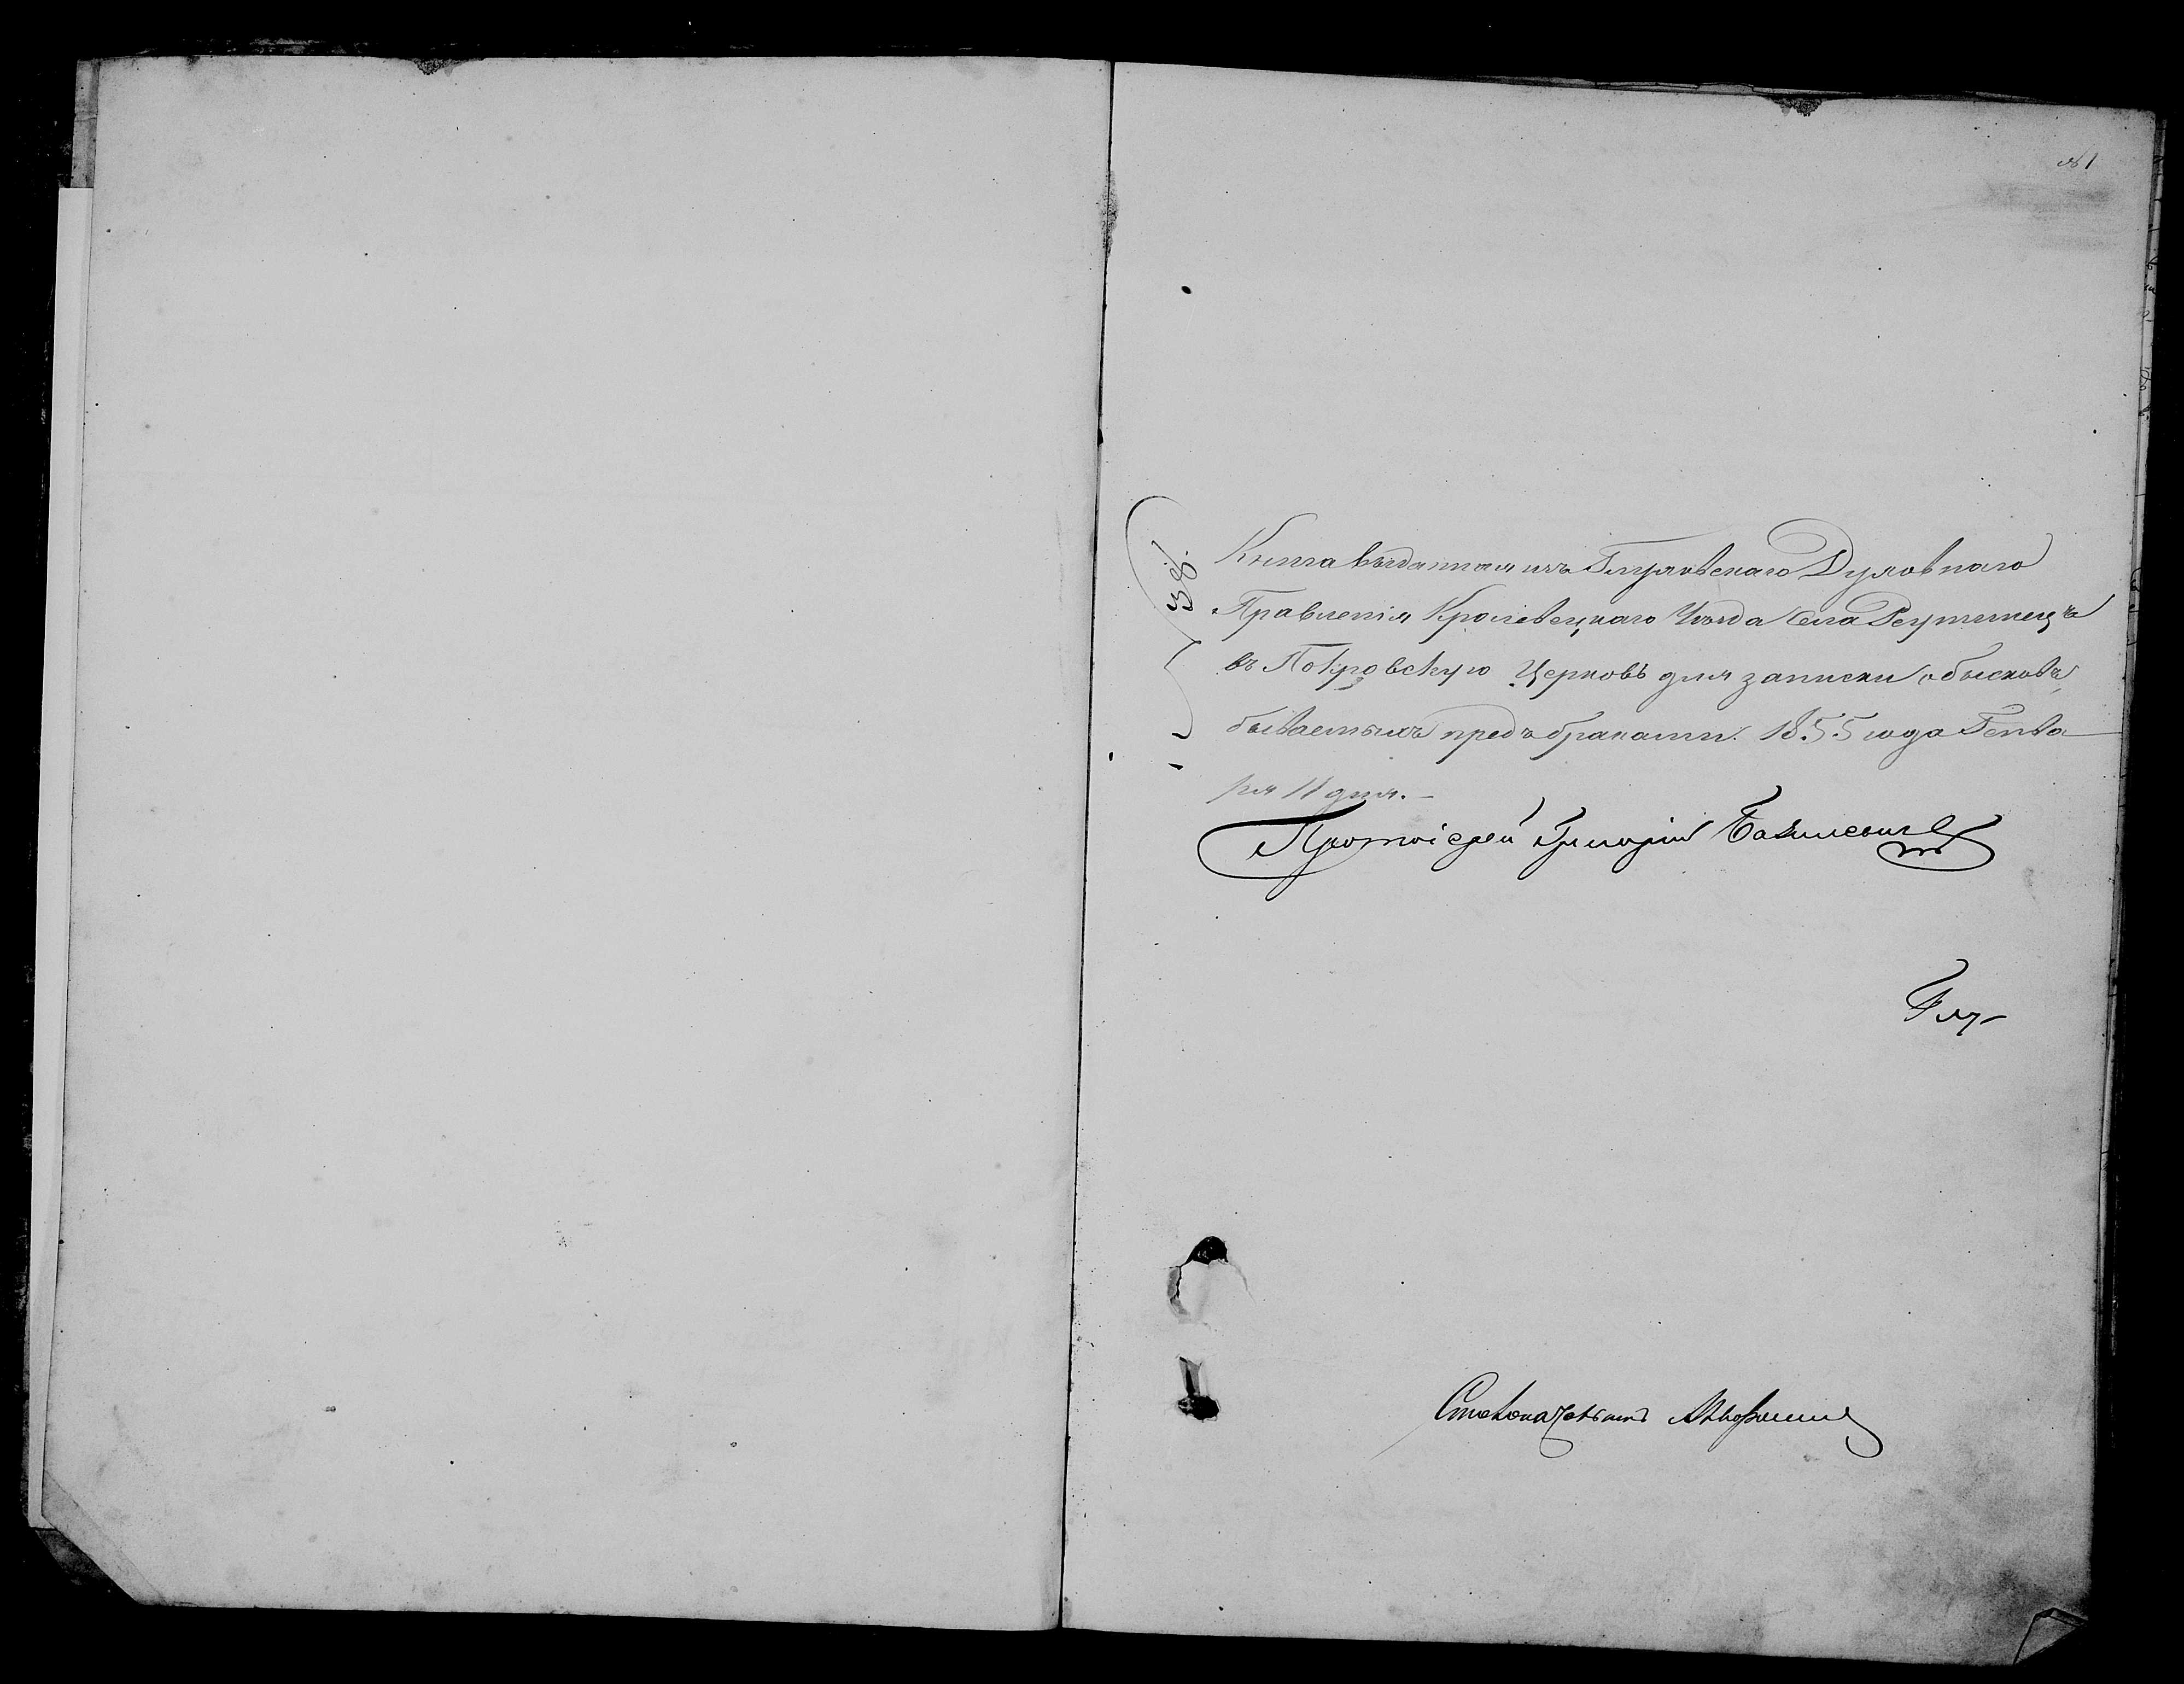 № 1
38.
Книга выданная изъ Глуховскаго Духовнаго
Правленія Кролевецкаго Уѣзда Села Реутинецъ
въ Покровскую Церковь для записки обысковъ,
бываемыхъ предъ браками. 1855 года Генва-
ря 11 дня.-
Протоіерей Григорій Базилевичъ
Глу-
Столоначальникъ